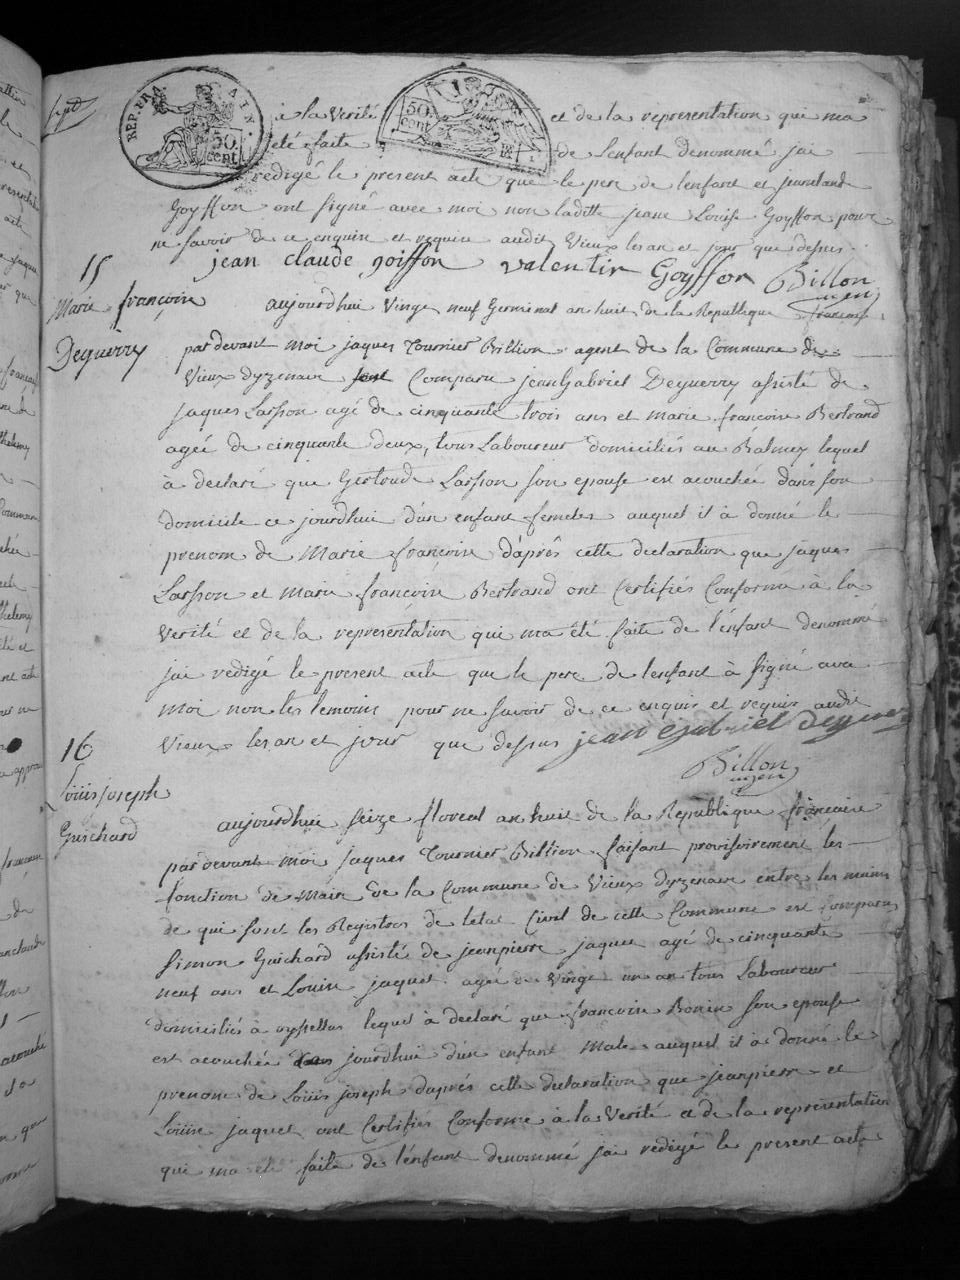 sept
REP. FRA. AIN.
50 cent
50 cent
à la verité et de la representation qui ma
été faite de lenfant denommé jai
redigé le present acte que le pere de lenfant et jeanclaude
Goyffon ont signé avec moi non laditte jeane Louise Goyffon pour
ne savoir de ce enquise et requise audit Vieux lesan et jour que dessus
jean claude goiffon valentin Goyffon Billion
agen
15
Marie françoise
Deguerry
aujourdhui Vingt neuf Germinal an huit de la Republique francaise
pardevant moi jaques Tournier Billion agent de la Commune de
Vieux dyzenave Comparu jeanGabriel Deguerry assisté de
jaques Lasson agé de cinquante trois ans et marie françoise Bertrand
agée de cinquante deux, tous Laboureur domiciliés au Balmey lequel
à declaré que Gertrude Lasson son epouse est acouchée dans son
domicile ce jourdhui dun enfant femele auquel il à donné le
prenom de Marie françoise d'après cette declaration que jaques
Lasson et marie françoise Bertrand ont Certifiés Conforme à la
verité et de la representation qui ma été faite de l'enfant denommé
jai redigé le present acte que le pere de lenfant à signé avec
moi non les temoins pour ne savoir de ce enquis et requis audit
Vieux lesan et jour que dessus jean gabriel Deguerry
Billion
agen
16
Louis joseph
Guichard
aujourdhui seize floreal an huit de la Republique française
pardevant moi jaques Tournier Billion faisant provisoirement les
fonction de Maire de la Commune de Vieux dyzenave entre les mains
de qui sont les Registres de letat Civil de cette Commune est Comparu
simon Guichard assisté de jeanpierre jaquet agé de cinquante
neuf ans et Louise jaquet agée de Vingt un an tous Laboureur
domiciliés à oyssellas lequel à declaré que françoise Bonin son epouse
est acouchée jourdhui dun enfant Male auquel il à donné le
prenom de Louis joseph daprés cette declaration que jeanpierre et
Louise jaquet ont Certifiés Conforme à la Verité et de la representation
qui ma été faite de l'enfant denommé jai redigé le present acte